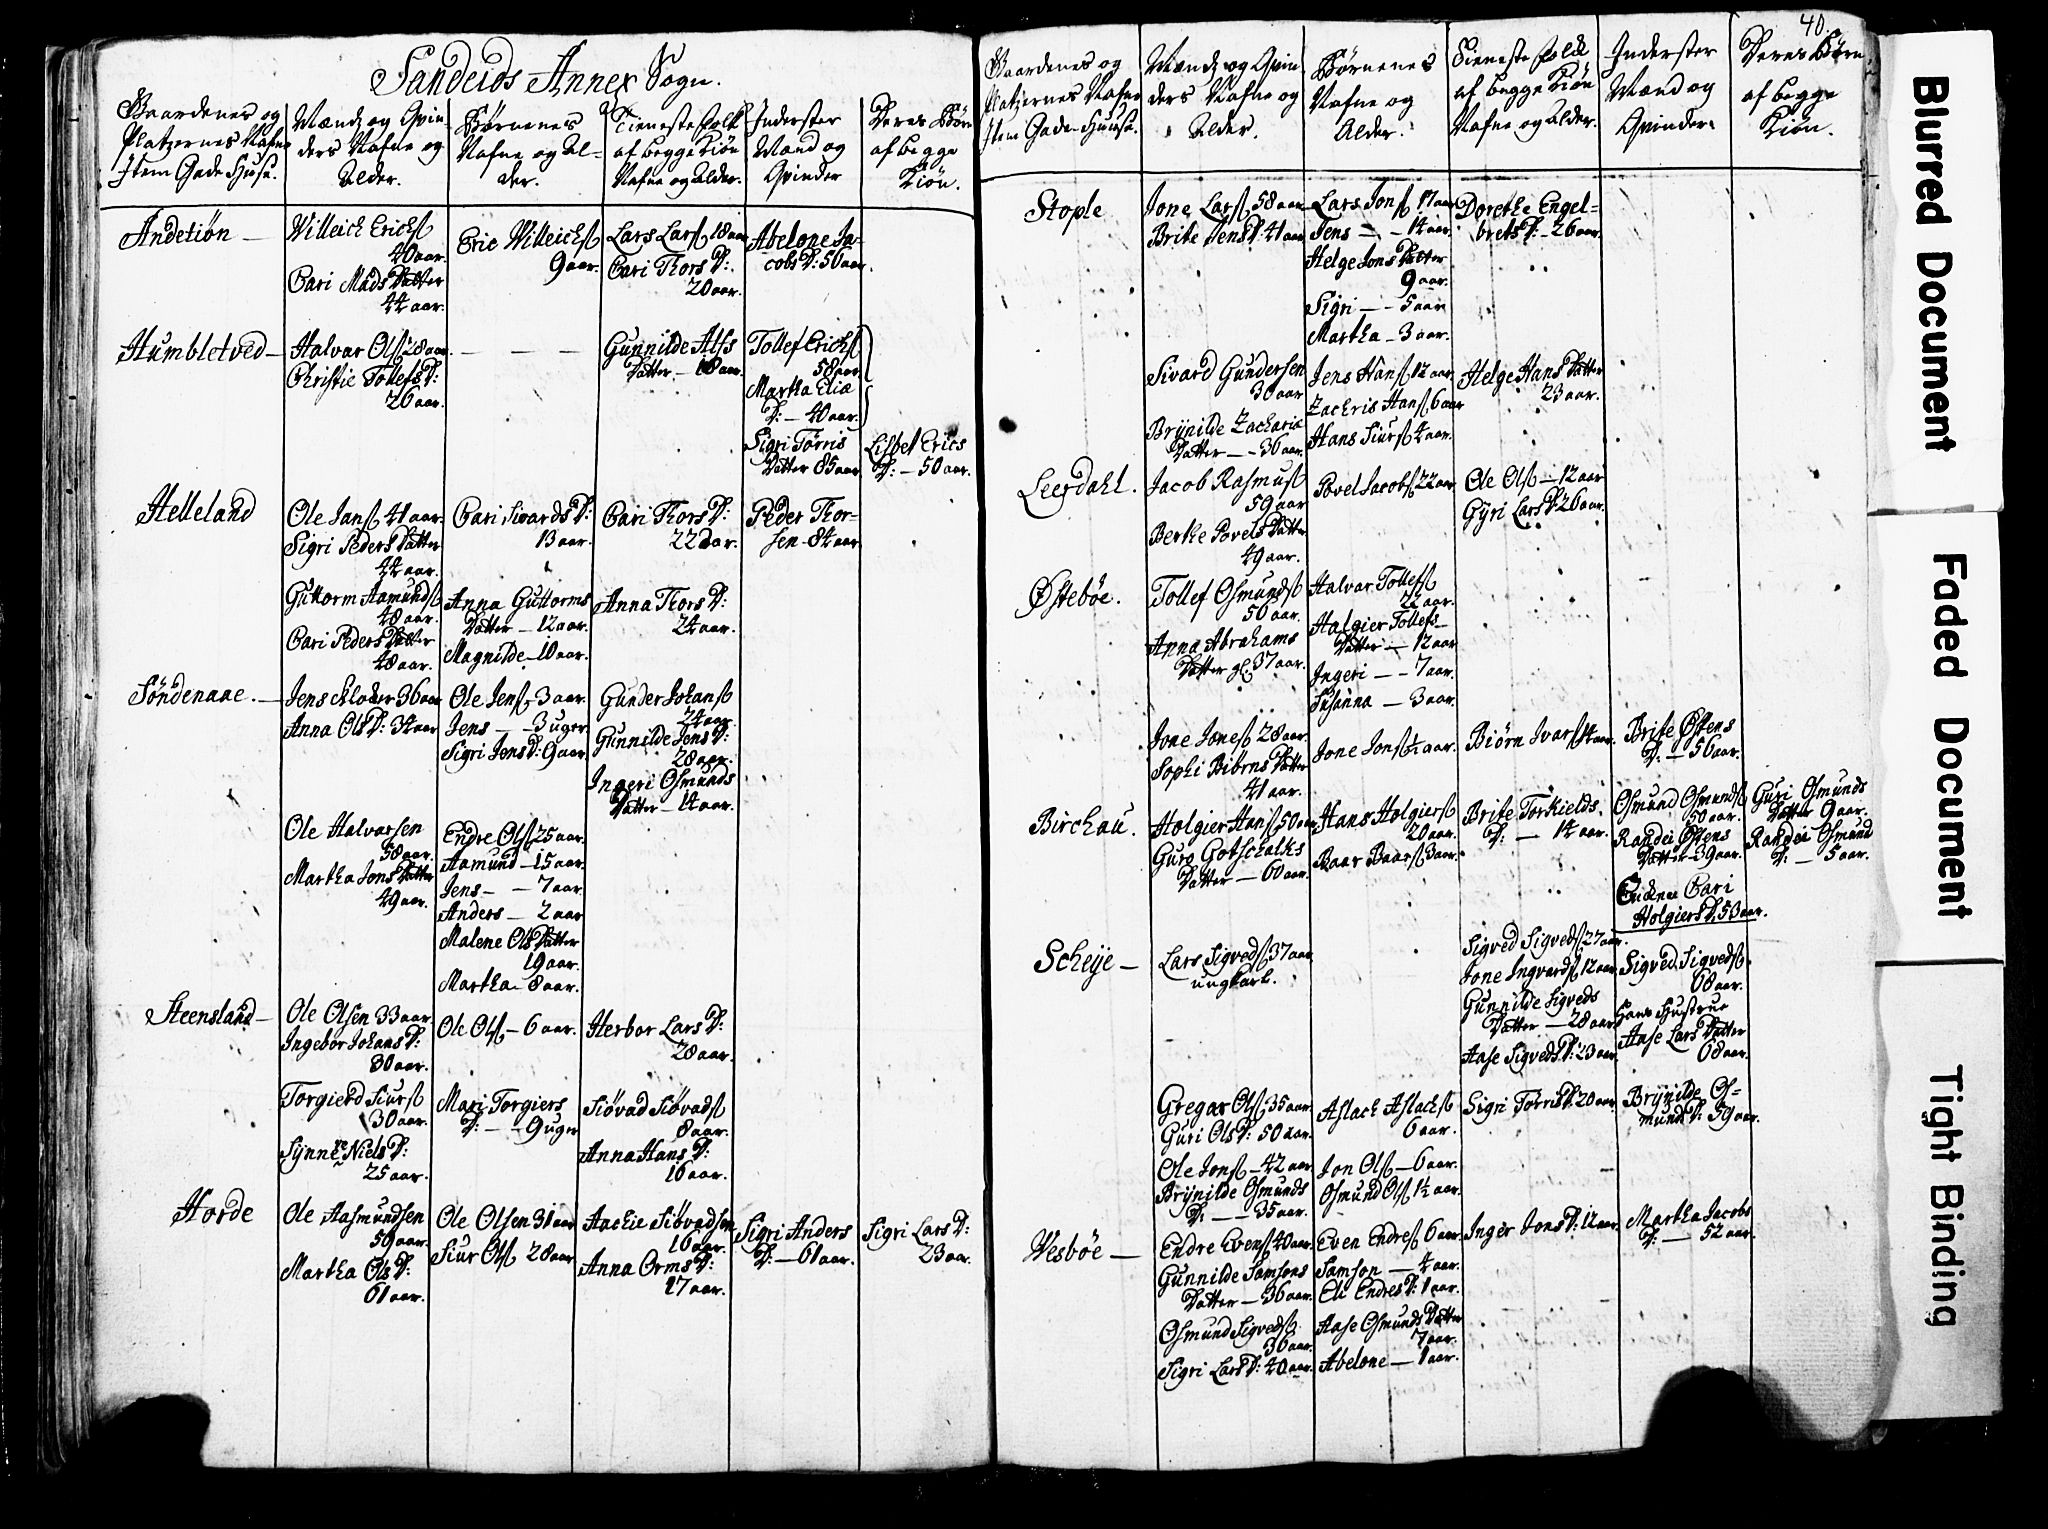 Sandeids Annex Sogn.
Gaardenes og
Platzernes Nafne
Item Gade Huse.
Mænds og Qvin-
ders Nafne og
Alder.
Børnenes
Nafne og Al-
der.
Tieneste folk
af begge Kiøn
Nafne og Alder.
Inderster
Mænd og
Qvinder
Deres Børn
af begge
Kiøn.
Andetiøn —
Villeich Erichs
40 aar.
Cari Mads Datter
44 aar.
Eric Villeichs
9 aar.
Lars Lars 18 aar
Cari Thors D:
20 aar.
Abelone Ja-
cobs D: 56 aar.
Humbletved —
Halvar Ols 28 aar.
Christie Tollefs D:
26 aar.
— — —
Gunnilde Alfs
Datter — 18 aar.
Tollef Erichs
58 aar.
Martha Eliæ
D: — 40 aar.
Sigri Tørris
Datter 85 aar
Lisbet Erics
D: — 50 aar.
Helleland
Ole Jans 41 aar.
Sigri Peders Datter
44 aar.
Cari Sivards D:
13 aar.
Cari Thors D:
22 aar.
Peder Thor-
sen 84 aar
Guttorm Aamunds
48 aar.
Cari Peders Datter
48 aar.
Anna Guttorms
Datter — 12 aar.
Magnilde — 10 aar.
Anna Thors D:
24 aar.
Søndenaae. —
Jens Klocker 36 aar
Anna Ols D: 34 aar
Ole Jens, 3 aar.
Jens — 3 uger
Sigri Jens D: 9 aar
Gunder Johans
24 aar.
Gunnilde Jens D:
28 aar.
Ingeri Osmunds
Datter — 14 aar.
Ole Halvarsen
58 aar.
Martha Jons Datter
49 aar.
Endre Ols 25 aar.
Aamund — 15 aar.
Jens — — 7 aar.
Anders — 2 aar
Malene Ols Datter
19 aar.
Martha — 8 aar.
Steensland —
Ole Olsen 33 aar
Ingebor Johans D:
30 aar.
Ole Ols — 6 aar.
Herbor Lars D:
28 aar.
Torgierd Siurs
30 aar.
Synne Niels D:
25 aar.
Mari Torgiers
D: — — 9 uger
Siøvad Siøvads
8 aar.
Anna Hans D:
16 aar.
Horde
Ole Aasmundsen
59 aar.
Martha Ols D:
61 aar.
Ole Olsen 31 aar
Siur Ols 28 aar
Aachie Siøvadsen
16 aar.
Anna Orms D:
17 aar.
Sigri Anders
D: — 61 aar.
Sigri Lars D:
23 aar.
40.
Gaardenes og
Platzernes Nafne
Item Gade Huuse.
Mænds og Qvin-
ders Nafne og
Alder.
Børnenes
Nafne og
Alder.
Tieneste folk
af begge Kiøn
Nafne og Alder.
Inderster
Mænd og
Qvinder
Deres Børn
af begge
Kiøn.
Stople
Jone Lars 58 aar
Brite Jens D: 41 aar
Lars Jons 17 aar
Jens — — 14 aar.
Helge Jons Datter
9 aar.
Sigri — — 5 aar
Martha — 3 aar.
Dorethe Engel-
brets D: — 26 aar.
Sivard Gundersen
30 aar
Brynilde Zachariæ
Datter — — 36 aar.
Jens Hans 12 aar.
Zachris Hans 6 aar
Hans Siurs 4 aar.
Helge Hans Datter
23 aar.
Leerdahl.
Jacob Rasmus
59 aar
Berthe Povels Datter
49 aar.
Povel Jacobs 22 aar
Ole Ols — 12 aar
Gyri Lars D: 26 aar.
Østebøe.
Tollef Osmunds
56 aar.
Anna Abrahams
Datter gl. 37 aar.
Halvar Tollefs
22 aar.
Halgier Tollefs
Datter — 12 aar
Ingeri — — 7 aar.
Susanna — 3 aar.
Jone Jones 28 aar.
Sophi Biørns Datter
41 aar.
Jone Jons ½ aar.
Biørn Ivars 14 aar.
Brite Østens
D: — 56 aar.
Birchau.
Holgier Hans 50 aar
Guro Gotschalks
Datter — 60 aar.
Hans Holgiers
20 aar.
Baar Baars 3 aar.
Brite Torkields
D: — 14 aar.
Osmund Osmunds
50 aar.
Randei Østens
Datter — 39 aar.
Guri Osmunds
Datter 9 aar.
Randei Osmund
D: — 5 aar.
Enckne Cari
Holgiers D: 53 aar.
Scheije —
Lars Sigveds 37 aar
ungkarl.
Sigved Sigveds 27 aar.
Jone Ingvards 12 aar
Gunnilde Sigveds
Datter — 28 aar
Aase Sigveds D: 23 aar
Sigved Sigveds
68 aar.
Hans Hustrue
Aase Lars Datter
68 aar.
Gregar Ols 35 aar
Guri Ols D: 50 aar.
Aslach Aslachs
6 aar.
Sigri Tørris D: 20 aar.
Brynilde Os-
munds D: 59 aar.
Ole Jons — 42 aar
Brynilde Osmunds
D: — — 35 aar.
Jon Ols — 6 aar.
Osmund Ols 1½ aar.
Vesbøe —
Endre Evens 40 aar.
Gunnilde Samsons
Datter — 36 aar.
Even Endres 6 aar.
Samson — 4 aar.
Eli Endres D: 1 aar.
Inger Jons D: 12 aar.
Martha Jacobs
D: — 52 aar.
Osmund Sigveds
36 aar.
Sigri Lars D: 40 aar.
Aase Osmunds Datter
7 aar.
Abelone — 1 aar.
Blurred Document
Faded Document
Tight Binding